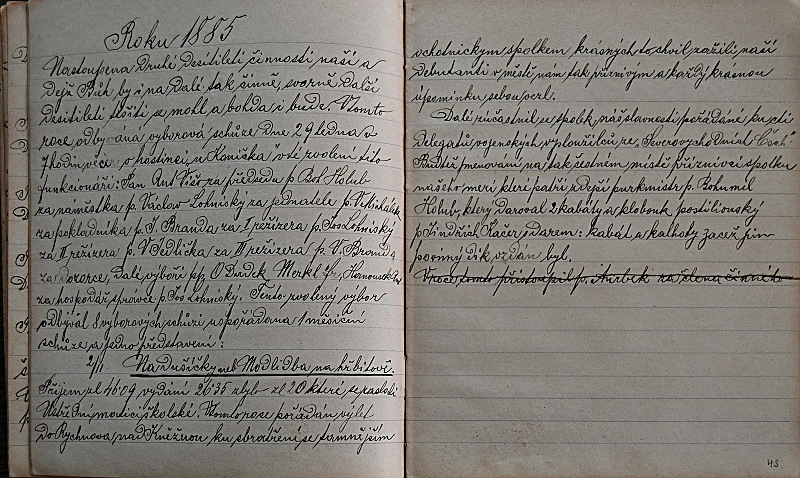 Roku 1885
Nastoupena Druhé Desítiletí činnosti naší a
dejž Bůh by i na Dalé tak činně, svorně Další
desítiletí těšiti se mohl a bohda i bude. V tomto
roce odbyvána výborová schůze dne 29 ledna o
7 hodin večer v hostinci u Koníčka v té zvoleni tito
funkcionáři: Jan Ant Víšo za předsedu p. Boh Holub
za náměstka p. Václav Lohniský za jednatele p. V.
za pokladníka p. J. Branda za I režizera p. Jos Lohniský
za II režizera p. V Jedlička za III režizera p. V.
za dozorce, Dalé výboři pp. O Dudek Merkl
za hospodář. správce p. Jos Lohniský. Tento zvolený výbor
odbýval 8 vyborových schůzí uspořádána 1 měsíční
schůze a jedno představení:
2/11 Na dušičky neb Modlidba na hřbitově.
Příjem zl 46·09 vydání 26·35 zbylo zl 20 které se zaslali
Ústřední matici školské. V tomto roce pořádán výlet
do Rychnova nad Kněžnou ku sbratření se tamnějším
ochotnickým spolkem krásných to chvil zažili naší
Debutanti v městě nám tak příznivým a každý krásnou
úpomínku sebou vezl.
Dalé zúčastnil se spolek náš slavnosti pořádané ku cti
Delegátů vojenských vysloužilců ze Severovýchodních Čech
Budtěž jmenováni na tak čestném místě příznivci spolku
našeho mezi které patří zdejší purkmistr p. Bohumil
Holub, který daroval 2 kabáty a klobouk postilionský
p Jindřich Kačer, darem: kabát a kalhoty začež jim
povinný dík vzdán byl.
V roce tomto přistoupil p. za člena činného
43